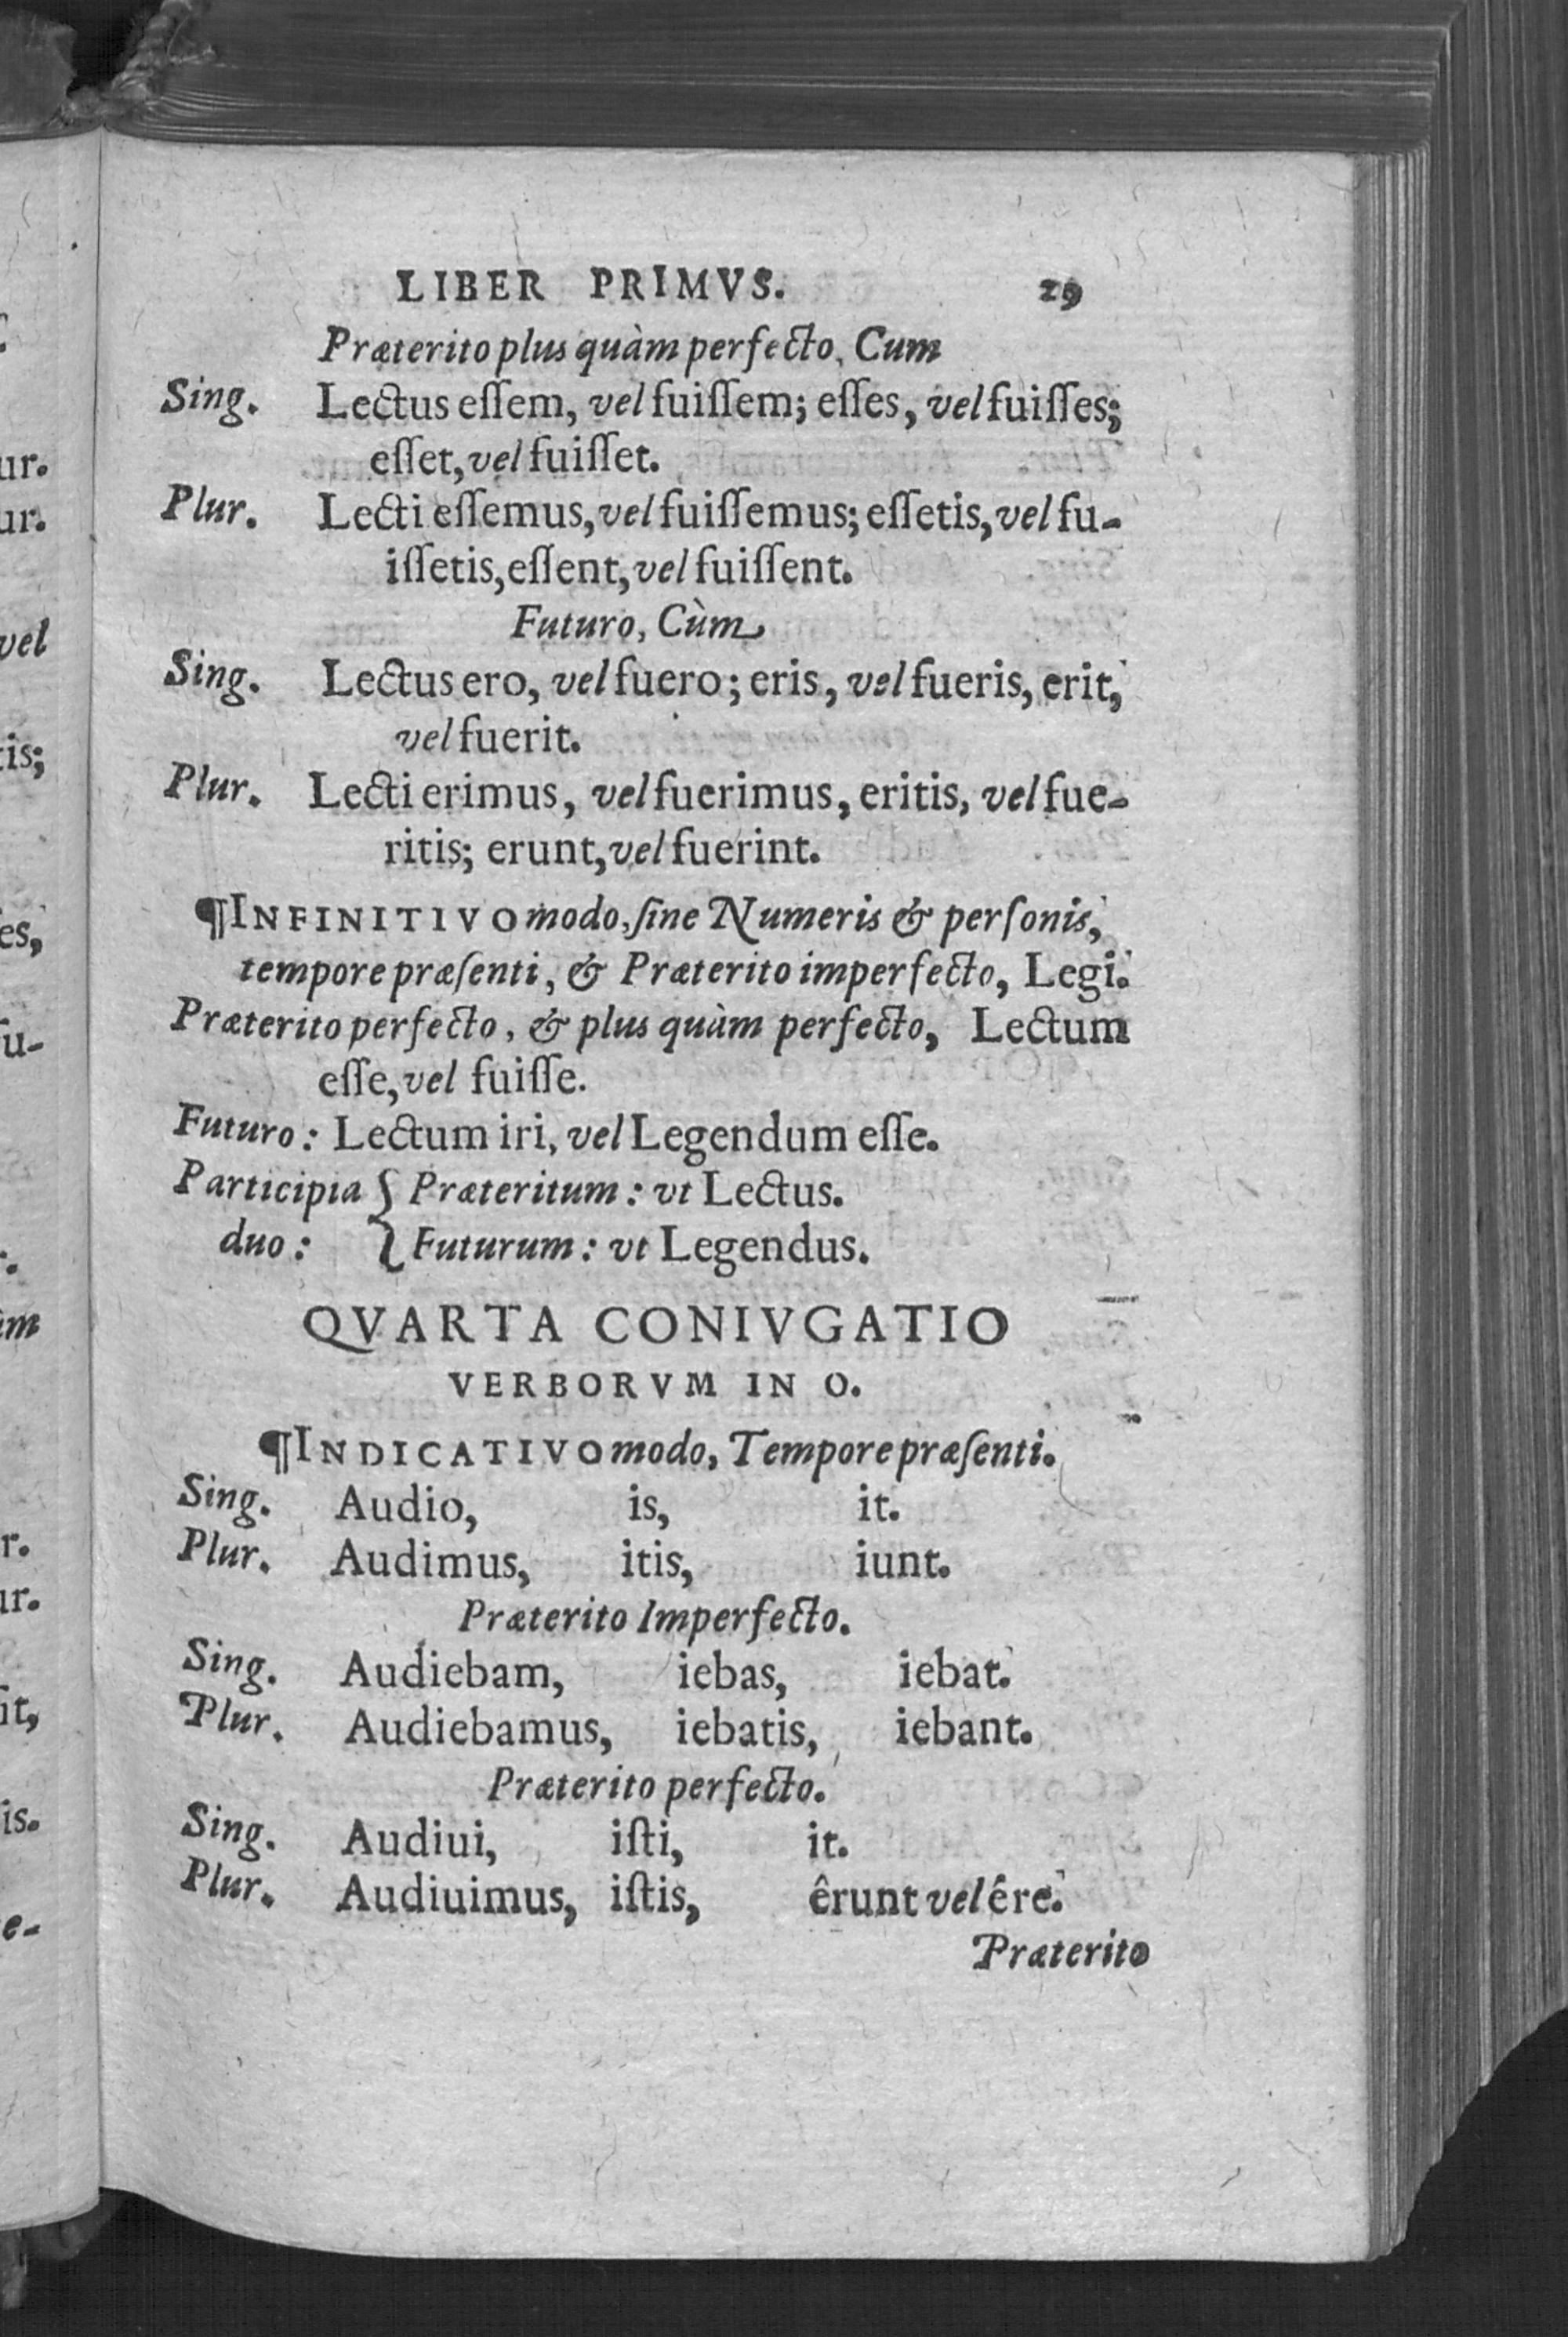 LIBER PRIMVS. 29
Præterito plus quàm perfecto, Cum
Sing. Lectus eſſem, vel fuiſſem; eſſes, vel fuiſſes;
eſſet, vel fuiſſet.
Plur. Lecti eſſemus, vel fuiſſemus; eſſetis, vel fu-
iſſetis, eſſent, vel fuiſſent.
Futuro, Cùm
Sing. Lectus ero, vel fuero; eris, vel fueris, erit,
vel fuerit.
Plur. Lecti erimus, vel fuerimus, eritis, vel fue-
ritis; erunt, vel fuerint.
¶INFINITIVO modo, ſine Numeris & perſonis,
tempore præſenti, & Præterito imperfecto, Legi.
Præterito perfecto, & plus quàm perfecto, Lectum
eſſe, vel fuiſſe.
Futuro: Lectum iri, vel Legendum eſſe.
Participia { Præteritum: vt Lectus.
duo: { Futurum: vt Legendus.
QVARTA CONIVGATIO
VERBORVM IN O.
¶INDICATIVO modo, Tempore præſenti.
Sing. Audio, is, it.
Plur. Audimus, itis, iunt.
Præterito Imperfecto.
Sing. Audiebam, iebas, iebat.
Plur. Audiebamus, iebatis, iebant.
Præterito perfecto.
Sing. Audiui, iſti, it.
Plur. Audiuimus, iſtis, êrunt vel êre.
Præterito